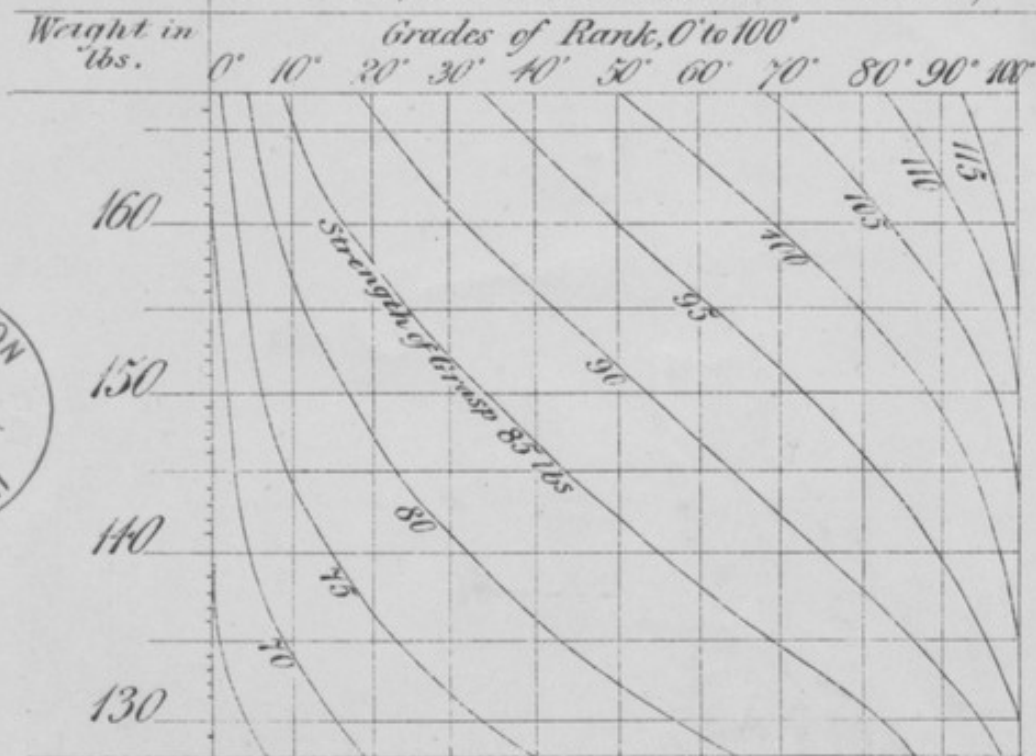 Weight in lbs.
Grades of Rank, 0° to 100°
0° 10° 20° 30° 40° 50° 60° 70° 80° 90° 100°
115
110
105
160
100
Strength of Grasp 85 lbs
95
150
90
80
140
75
70
130